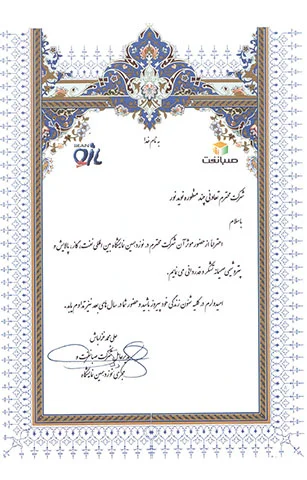 به نام خدا
IRAN
صبانفت
شرکت محترم تعاونی چند منظوره نوید نور
با سلام
احتراماً از حضور موثر آن شرکت محترم در نوزدهمین نمایشگاه بین المللی نفت، گاز، پالایش و
پتروشیمی صمیمانه تشکر و قدردانی می نمایم.
امیدوارم در کلیه شئون زندگی خود پیروز باشید و حضور شما در سال های بعد نیز تداوم یابد.
علی محمد
مدیرعامل شرکت صبانفت و
مجری نوزدهمین نمایشگاه